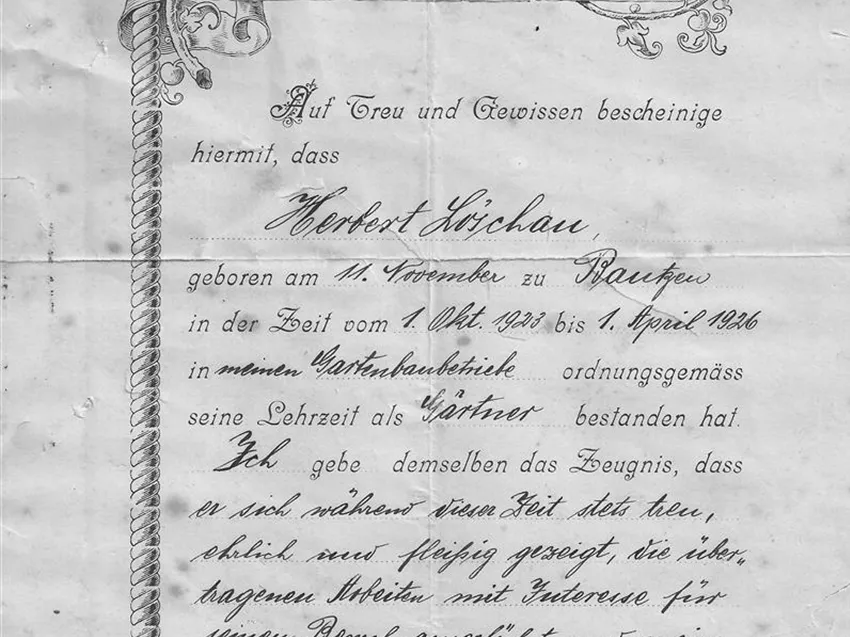 Auf Treu und Gewissen bescheinige
hiermit, dass
Herbert Löschau,
geboren am 11. November zu Bautzen
in der Zeit vom 1. Okt. 1923 bis 1. April 1926
in meinen Gartenbaubetriebe ordnungsgemäss
seine Lehrzeit als Gärtner bestanden hat.
Ich gebe demselben das Zeugnis, dass
er sich während dieser Zeit stets treu,
ehrlich und fleißig gezeigt, die über„
tragenen Arbeiten mit Interesse für
seinen Beruf